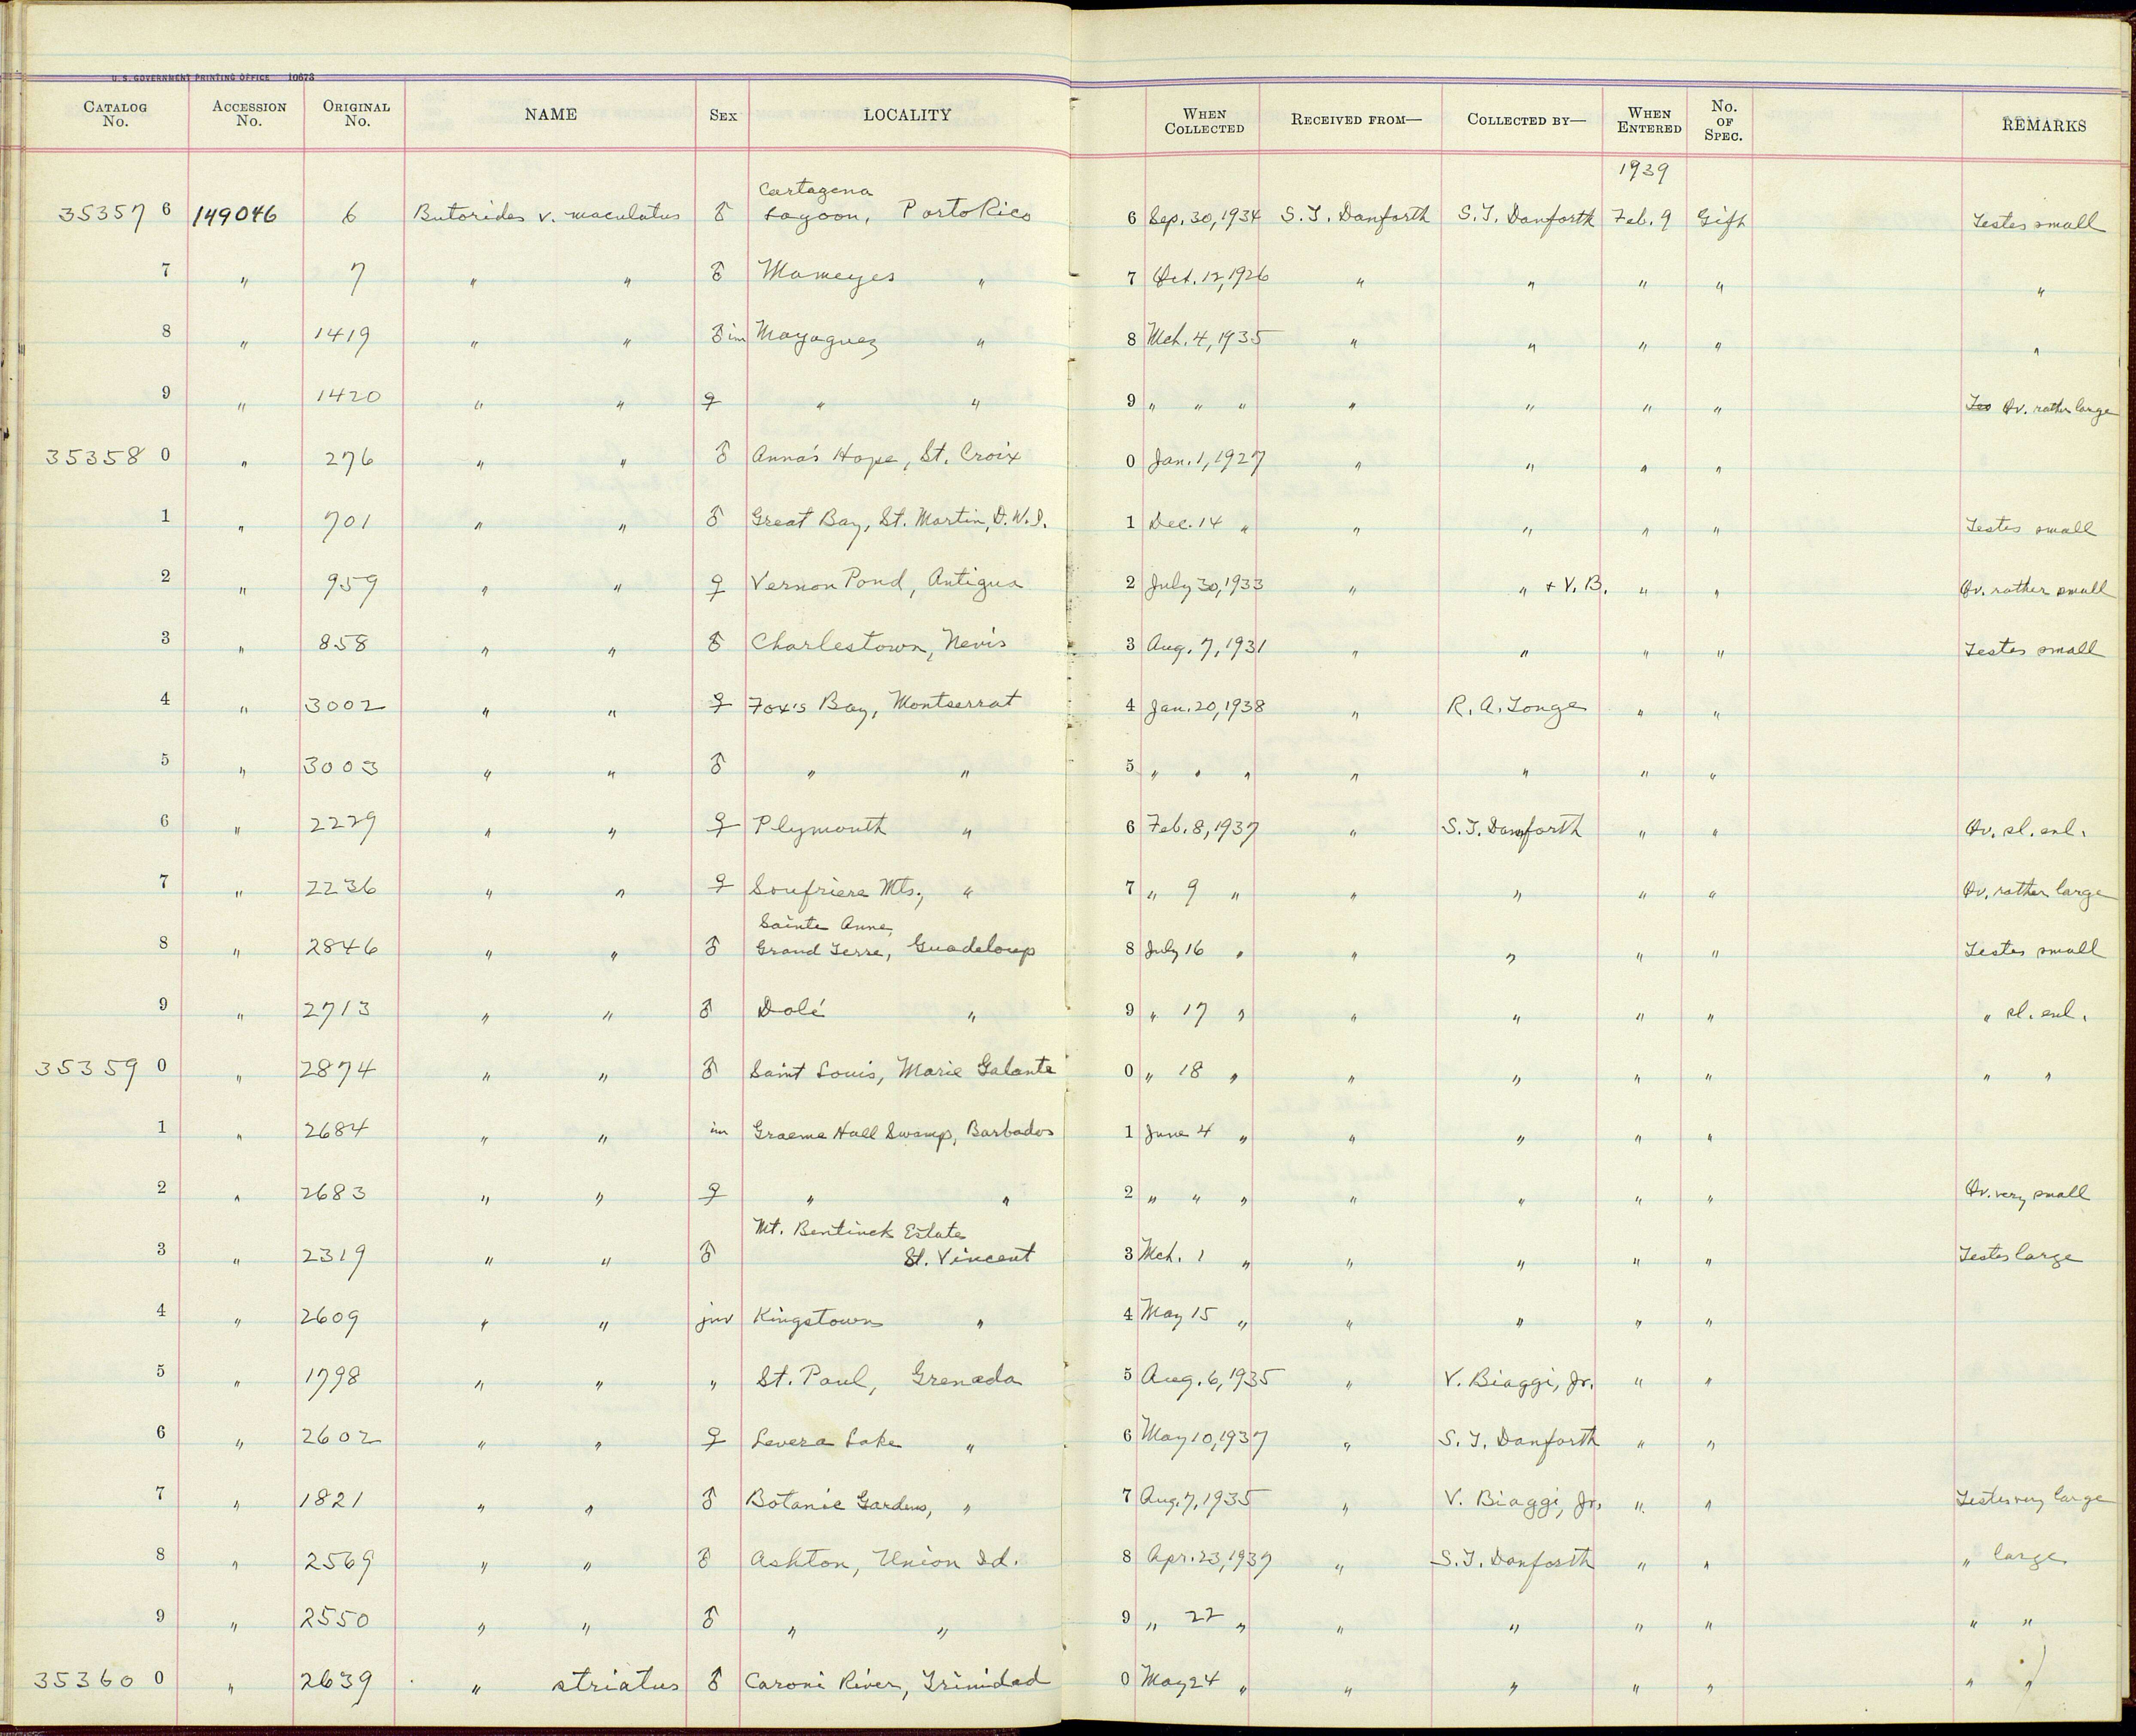 U. S. GOVERNMENT PRINTING OFFICE 10673
CATALOG No. ACCESSION No. ORIGINAL No. NAME SEX LOCALITY WHEN COLLECTED RECEIVED FROM— COLLECTED BY— WHEN ENTERED No. OF SPEC. REMARKS
1939
Cartagena
35357 6 149046 6 Butorides v. maculatus ♂ Lagoon, Porto Rico 6 Sep. 30, 1934 S. T. Danforth S. T. Danforth Feb. 9 Gift Testes small
7 " 7 " " ♂ Mameyes " 7 Oct. 12, 1926 " " " " "
8 " 1419 " " ♂ im Mayaguez " 8 Mch. 4, 1935 " " " " "
9 " 1420 " " ♀ " " 9 " " " " " " " Ov. rather large
35358 0 " 276 " " ♂ Anna's Hope, St. Croix 0 Jan. 1, 1927 " " " "
1 " 701 " " ♂ Great Bay, St. Martin, D.W.I. 1 Dec. 14 " " " " " Testes small
2 " 959 " " ♀ Vernon Pond, Antigua 2 July 30, 1933 " " + V. B. " " Ov. rather small
3 " 858 " " ♂ Charlestown, Nevis 3 Aug. 7, 1931 " " " " Testes small
4 " 3002 " " ♀ Fox's Bay, Montserrat 4 Jan. 20, 1938 " R. A. Tonge " "
5 " 3003 " " ♂ " " 5 " " " " " " "
6 " 2229 " " ♀ Plymouth " 6 Feb. 8, 1937 " S. T. Danforth " " Ov. sl. enl.
7 " 2236 " " ♀ Soufriere Mts., " 7 " 9 " " " " " Ov. rather large
Sainte Anne,
8 " 2846 " " ♂ Grand Terre, Guadeloup 8 July 16 " " " " " Testes small
9 " 2713 " " ♂ Dolé " 9 " 17 " " " " " " sl. enl.
35359 0 " 2874 " " ♂ Saint Louis, Marie Galante 0 " 18 " " " " " " "
1 " 2684 " " im Graeme Hall Swamp, Barbados 1 June 4 " " " " "
2 " 2683 " " ♀ " " 2 " " " " " " " Ov. very small
Mt. Bentinck Estate
3 " 2319 " " ♂ St. Vincent 3 Mch. 1 " " " " " Testes large
4 " 2609 " " juv Kingstown " 4 May 15 " " " " "
5 " 1798 " " " St. Paul, Grenada 5 Aug. 6, 1935 " V. Biaggi, Jr. " "
6 " 2602 " " ♀ Levera Lake " 6 May 10, 1937 " S. T. Danforth " "
7 " 1821 " " ♂ Botanic Gardens, " 7 Aug. 7, 1935 " V. Biaggi, Jr. " " Testes very large
8 " 2569 " " ♂ Ashton, Union Id. 8 Apr. 23, 1937 " S. T. Danforth " " " large
9 " 2550 " " ♂ " " 9 " 22 " " " " " " "
35360 0 " 2639 " striatus ♂ Caroni River, Trinidad 0 May 24 " " " " " " "